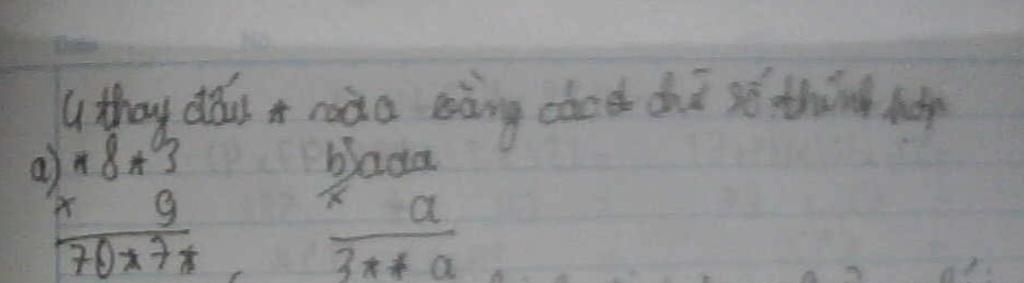 4 thay dấu * và a bằng các chữ số thích hợp
a) *8*3 b) aaa
x 9 x a
70*7* 3**a